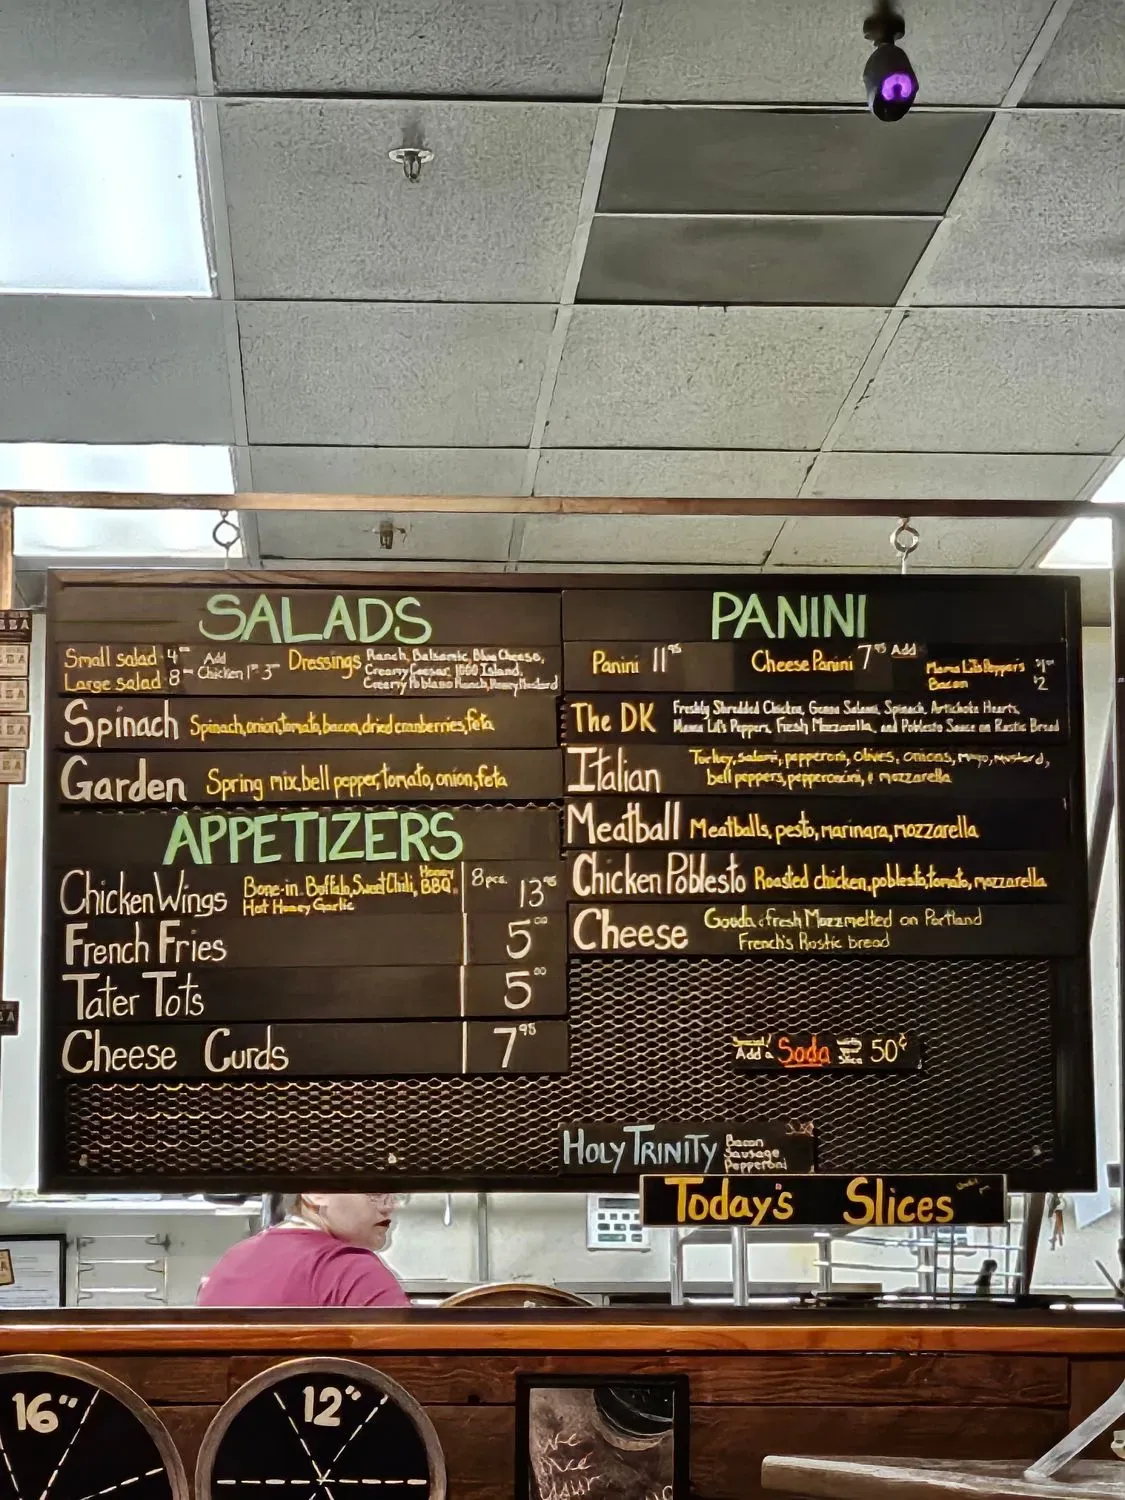 SALADS
Small salad 4
Large salad 8
Add
Chicken
Dressings Ranch, Balsamic, Blue Cheese,
Creamy Caesar, 1000 Island,
Creamy Poblano Ranch, Honey Mustard
Spinach Spinach, onion, tomato, bacon, dried cranberries, feta
Garden Spring mix, bell pepper, tomato, onion, feta
APPETIZERS
Chicken Wings Bone-in. Buffalo, Sweet Chili, Honey BBQ,
Hot Honey Garlic
8 pcs. 13 95
French Fries 5 00
Tater Tots 5 00
Cheese Curds 7 95
PANINI
Panini 11 95 Cheese Panini 7 95 Add
Mama Lil's Peppers
Bacon $2
The DK Freshly Shredded Chicken, Genoa Salami, Spinach, Artichoke Hearts,
Mama Lil's Peppers, Fresh Mozzarella, and Poblesto Sauce on Rustic Bread
Italian Turkey, salami, pepperoni, olives, onions, mayo, mustard,
bell peppers, pepperoncini, & mozzarella
Meatball Meatballs, pesto, marinara, mozzarella
Chicken Poblesto Roasted chicken, poblesto, tomato, mozzarella
Cheese Gouda & fresh Mozz melted on Portland
French's Rustic bread
Special!
Add a Soda 50¢
HOLY TRINITY Bacon
Sausage
Pepperoni
Today's Slices
16"
12"
We